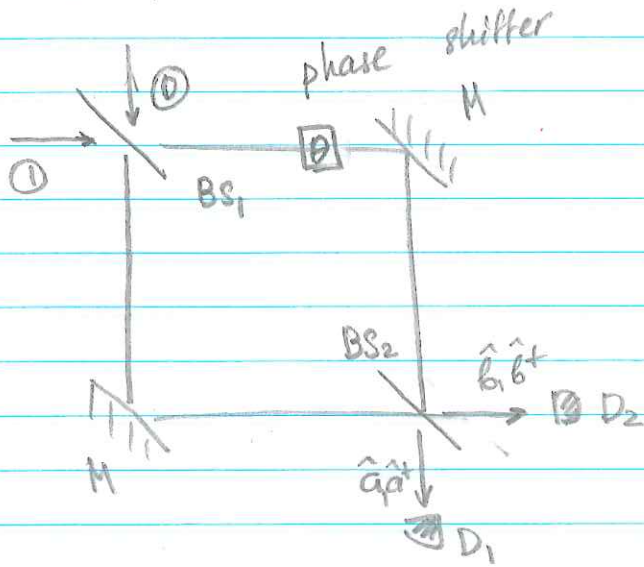 phase shifter
⓪
M
①
θ
BS₁
BS₂
b̂, b̂⁺
D₂
M
â, â⁺
D₁